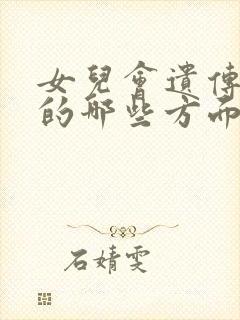 女兒會遺傳
的哪些方面
石婧雯